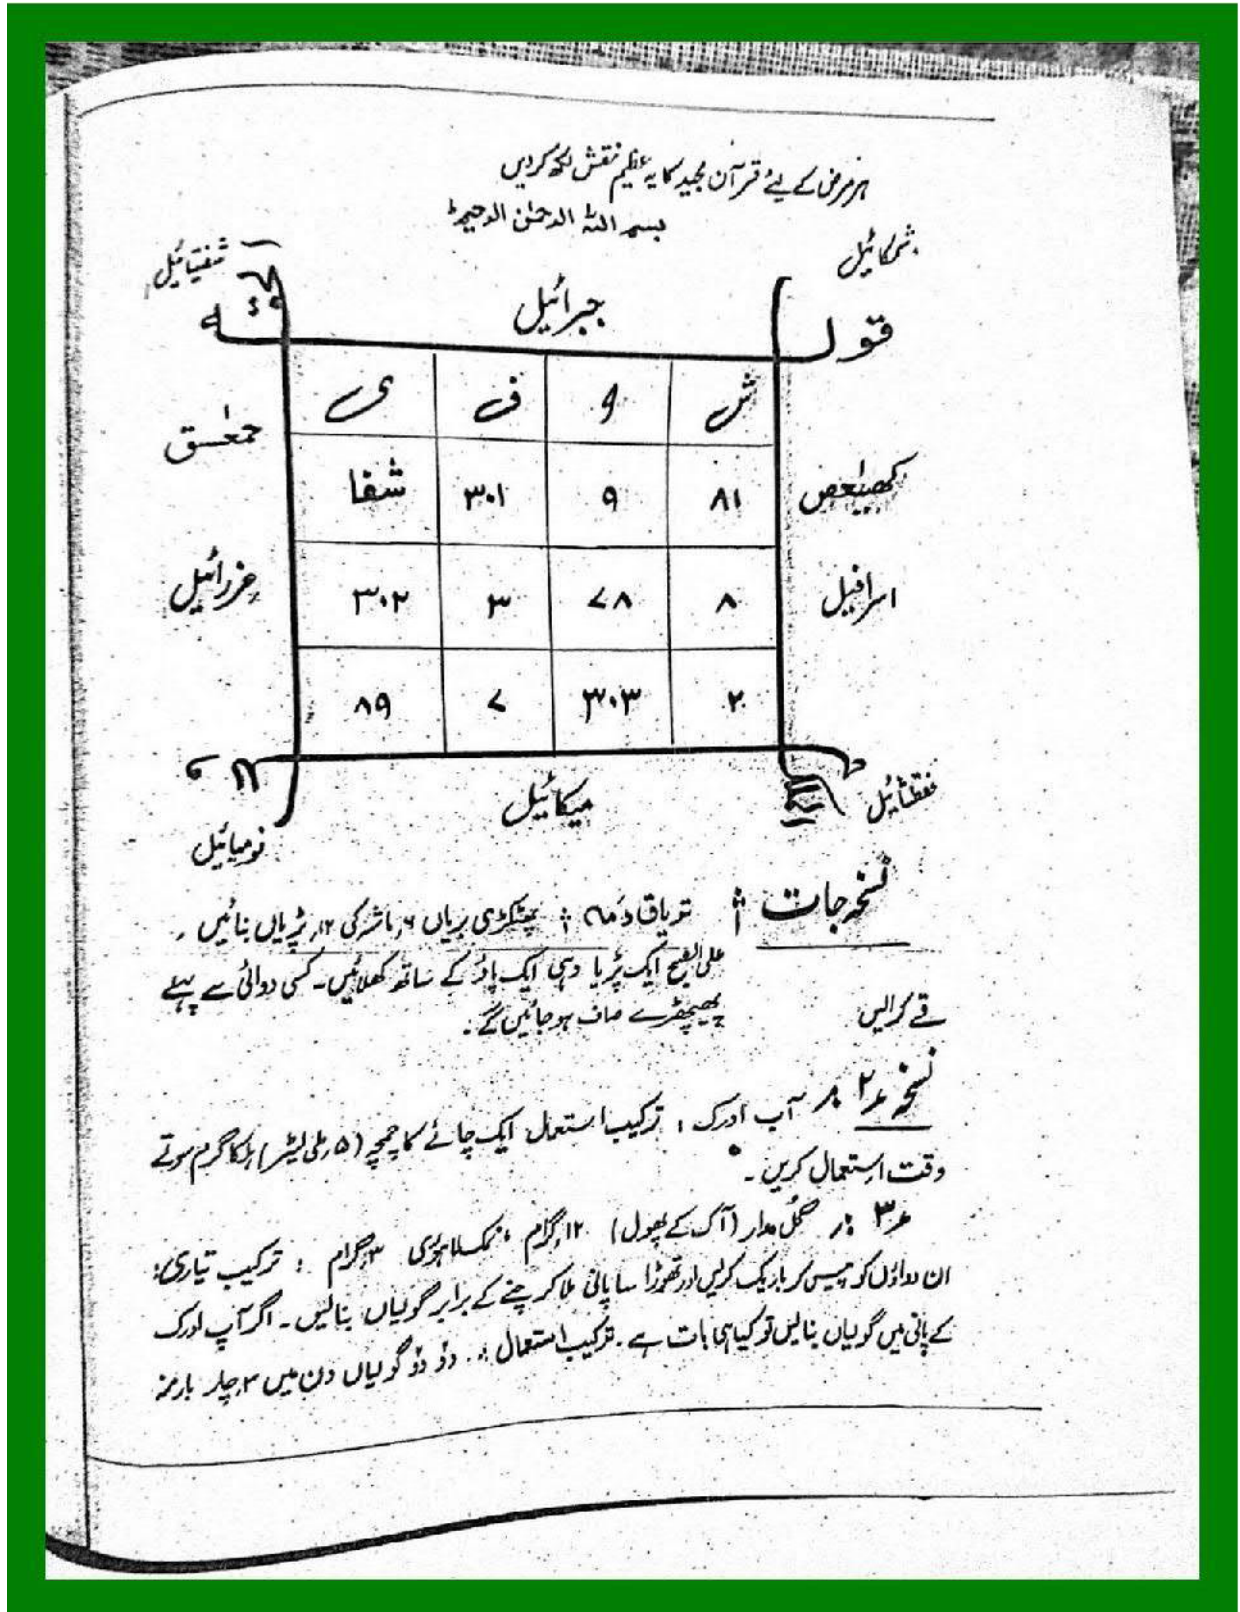 ہر مرض کے لیے قرآن مجید کا یہ عظیم نقش لکھ کر دیں
بسم اللہ الرحمٰن الرحیم
جبرائیل
قولہ
ش و ف ی
حمعسق
۸۱ ۹ ۳۰۱ شفا
کھیعص
اسرافیل ۸ ۷۸ ۳ ۳۰۲ عزرائیل
۲ ۳۰۳ ۷ ۸۹
میکائیل
نومیائیل
نسخہ جات : تریاق دمہ : پھٹکڑی بریاں ۶ ماشہ کی ۱۲ پڑیاں بنائیں ۔
علی الصبح ایک پڑیا دہی ایک پاؤ کے ساتھ کھلائیں ۔ کسی دوائی سے پہلے
قے کرالیں پھیپھڑے صاف ہو جائیں گے ۔
نسخہ ۲ : آب ادرک : ترکیب استعمال ایک چائے کا چمچہ (۵ ملی لیٹر) ہلکا گرم سوتے
وقت استعمال کریں ۔
۳ : گل مدار (آک کے پھول) ۱۲ گرام ، نمک لاہوری ۳ گرام : ترکیب تیاری :
ان دواؤں کو پیس کر باریک کرلیں اور تھوڑا سا پانی ملا کر چنے کے برابر گولیاں بنالیں ۔ اگر آپ ادرک
کے پانی میں گولیاں بنالیں تو کیا ہی بات ہے ۔ ترکیب استعمال : دو دو گولیاں دن میں ۳ چار بار